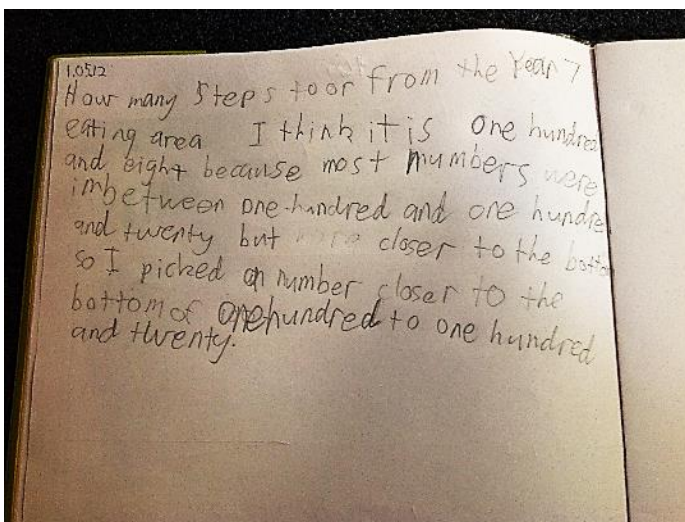 1.0512
How many Steps to or from the Year 7
eating area I think it is one hundred
and eight because most numbers were
imbetween one-hundred and one hundred
and twenty but closer to the bottom
so I picked an number closer to the
bottom of onehundred to one hundred
and twenty.